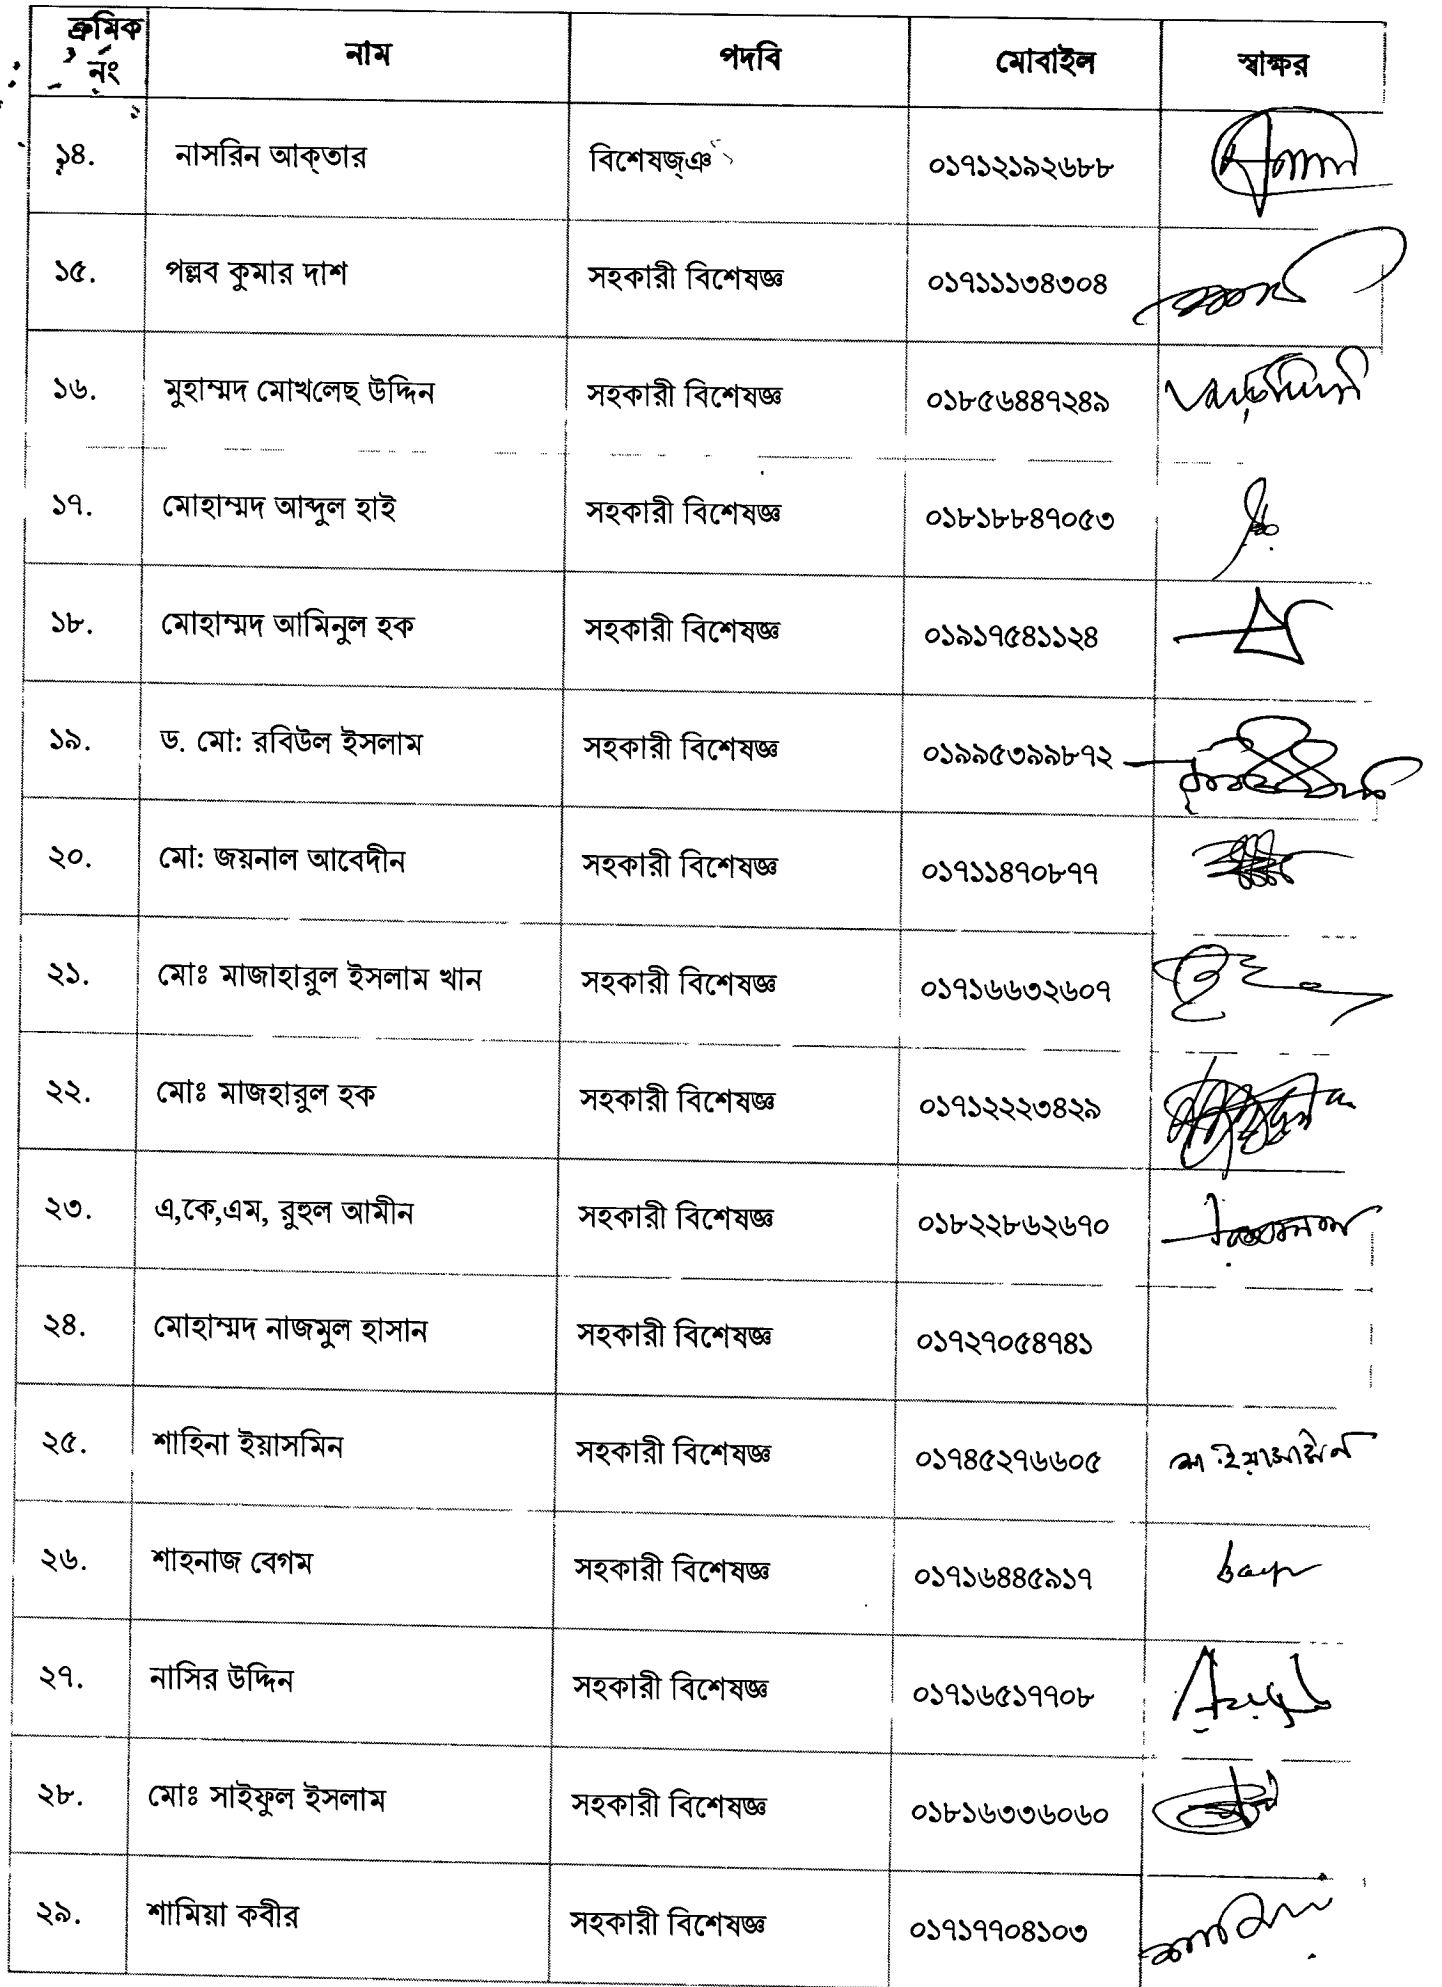 ক্রমিক নং নাম পদবি মোবাইল স্বাক্ষর
১৪. নাসরিন আক্‌তার বিশেষজ্‌ঞ ০১৭১২১৯২৬৮৮
১৫. পল্লব কুমার দাশ সহকারী বিশেষজ্ঞ ০১৭১১১৩৪৩০৪
১৬. মুহাম্মদ মোখলেছ উদ্দিন সহকারী বিশেষজ্ঞ ০১৮৫৬৪৪৭২৪৯
১৭. মোহাম্মদ আব্দুল হাই সহকারী বিশেষজ্ঞ ০১৮১৮৮৪৭০৫৩
১৮. মোহাম্মদ আমিনুল হক সহকারী বিশেষজ্ঞ ০১৯১৭৫৪১১২৪
১৯. ড. মো: রবিউল ইসলাম সহকারী বিশেষজ্ঞ ০১৯৯৫৩৯৯৮৭২
২০. মো: জয়নাল আবেদীন সহকারী বিশেষজ্ঞ ০১৭১১৪৭০৮৭৭
২১. মোঃ মাজাহারুল ইসলাম খান সহকারী বিশেষজ্ঞ ০১৭১৬৬৩২৬০৭
২২. মোঃ মাজহারুল হক সহকারী বিশেষজ্ঞ ০১৭১২২২৩৪২৯
২৩. এ,কে,এম, রুহুল আমীন সহকারী বিশেষজ্ঞ ০১৮২২৮৬২৬৭০
২৪. মোহাম্মদ নাজমুল হাসান সহকারী বিশেষজ্ঞ ০১৭২৭০৫৪৭৪১
২৫. শাহিনা ইয়াসমিন সহকারী বিশেষজ্ঞ ০১৭৪৫২৭৬৬০৫
২৬. শাহনাজ বেগম সহকারী বিশেষজ্ঞ ০১৭১৬৪৪৫৯১৭
২৭. নাসির উদ্দিন সহকারী বিশেষজ্ঞ ০১৭১৬৫১৭৭০৮
২৮. মোঃ সাইফুল ইসলাম সহকারী বিশেষজ্ঞ ০১৮১৬৩৩৬০৬০
২৯. শামিয়া কবীর সহকারী বিশেষজ্ঞ ০১৭১৭৭০৪১০৩